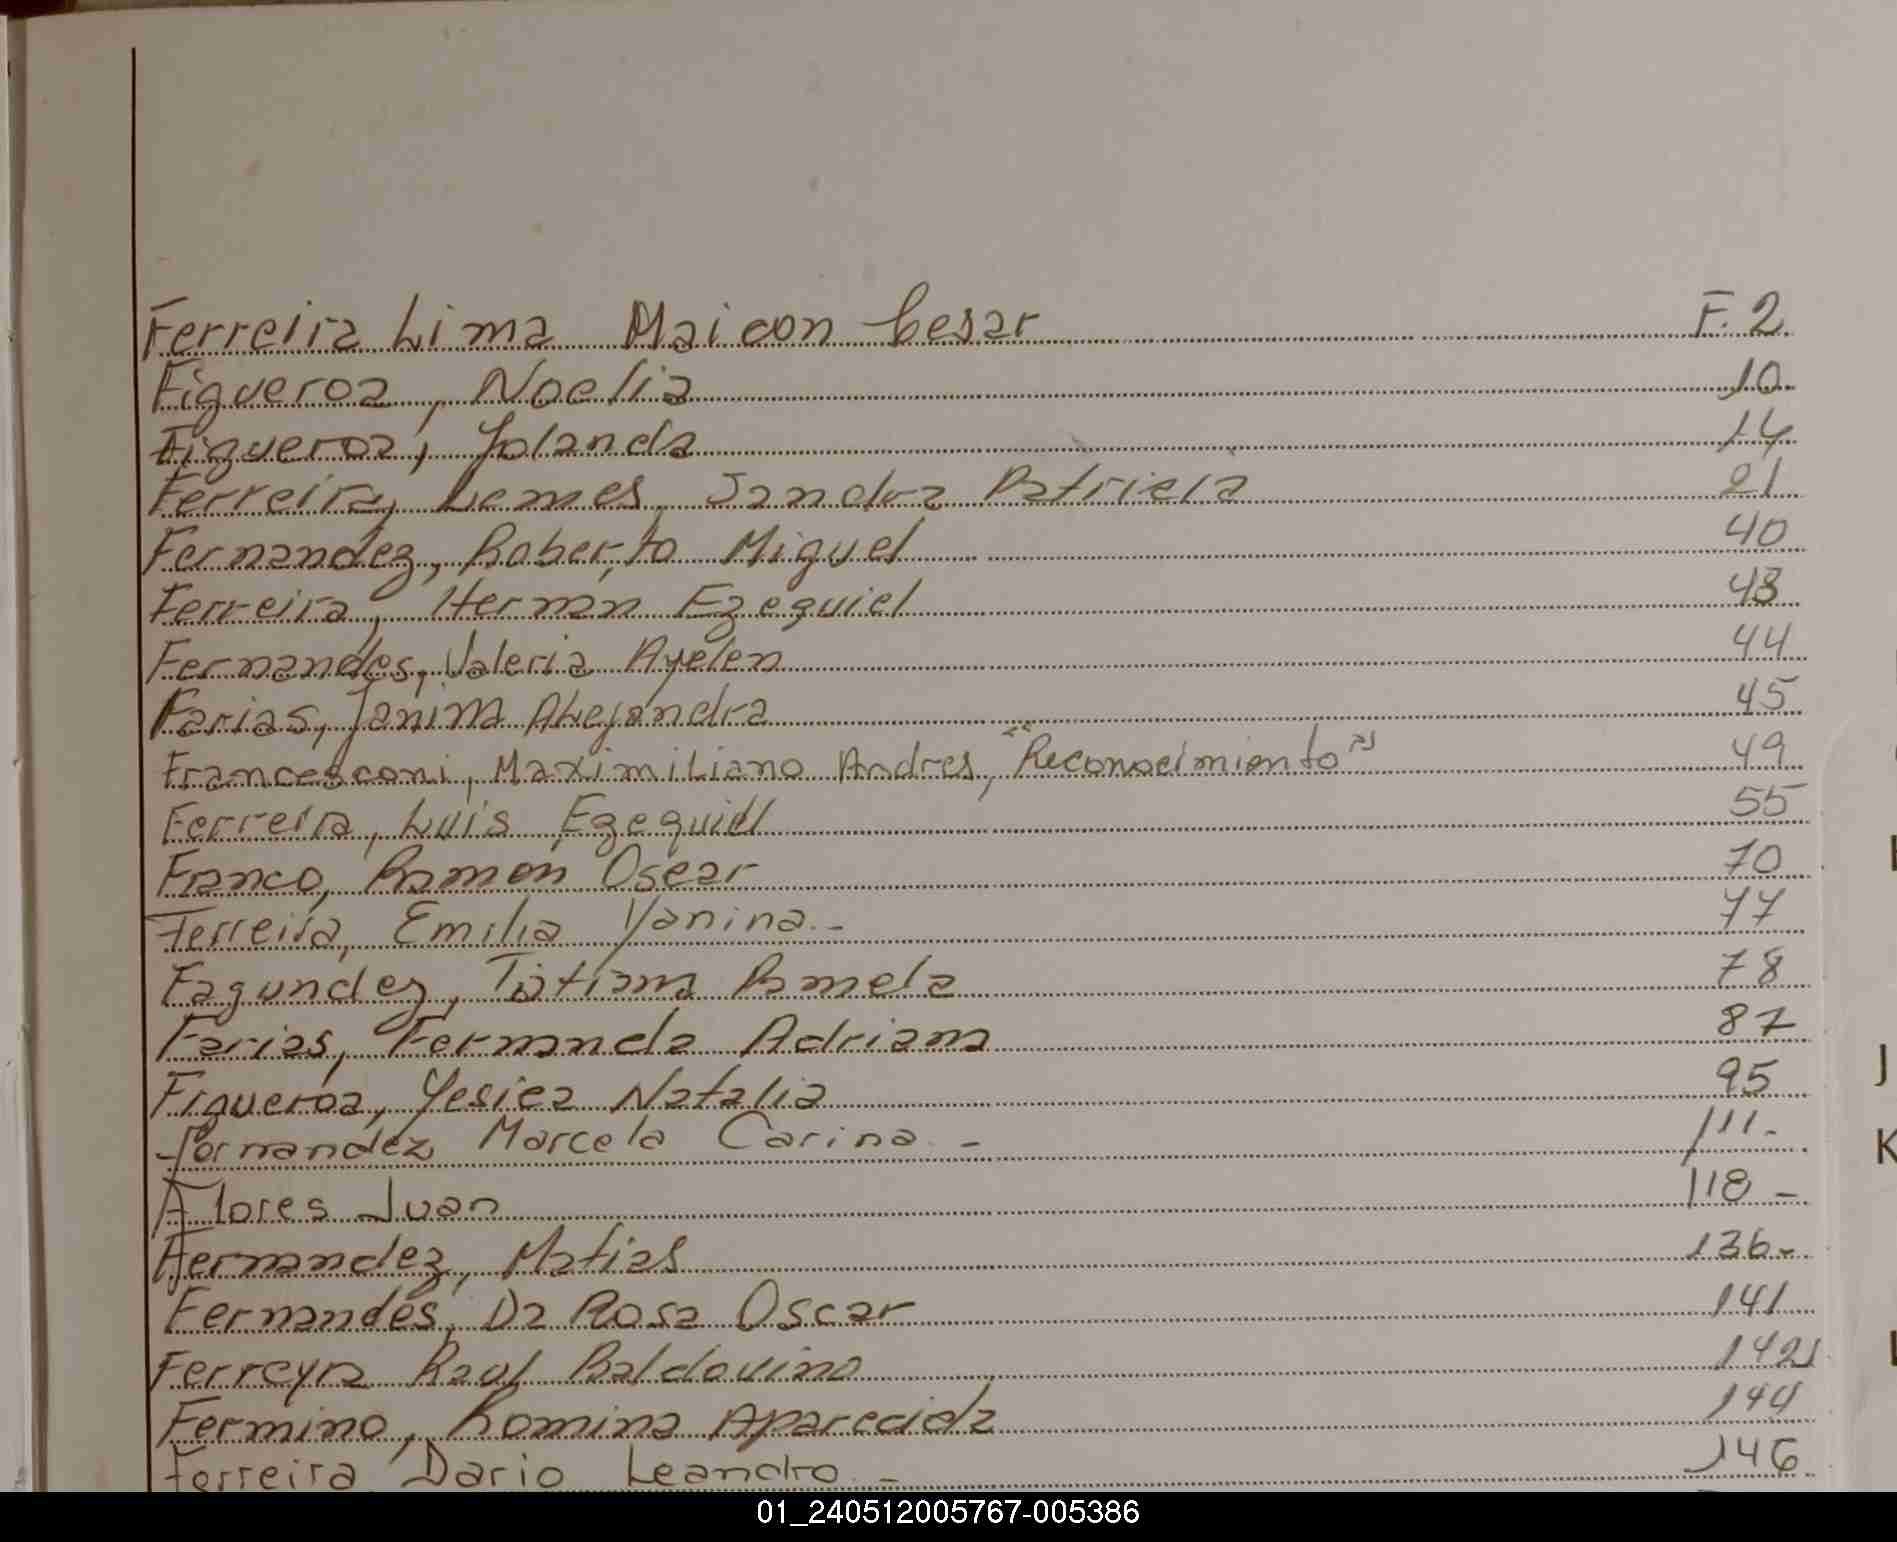 Ferreira Lima Maicon Cesar F. 2
Figueroa, Noelia 10
Figueroa, Yolanda 14
Ferreira, Lemes Sandra Patricia 21
Fernandez, Roberto Miguel 40
Ferreira, Hernan Ezequiel 43
Fernandes, Valeria Ayelen 44
Farias, Janina Alejandra 45
Francesconi, Maximiliano Andres, "Reconocimiento" 49
Ferreira, Luis Ezequiel 55
Franco, Ramon Oscar 70
Ferreira, Emilia Yanina.- 77
Fagundez, Tatiana Pamela 78
Farias, Fernanda Adriana 87
Figueroa, Yesica Natalia 95
Fernandez Marcela Carina.- 111.-
Flores Juan 118 -
Fernandez, Matias 136.-
Fernandes, Da Rosa Oscar 141
Ferreyra Raul Baldovino 142
Fermino, Romina Aparecida 144
Ferreira Dario Leandro.- 146
J
K
01_240512005767-005386